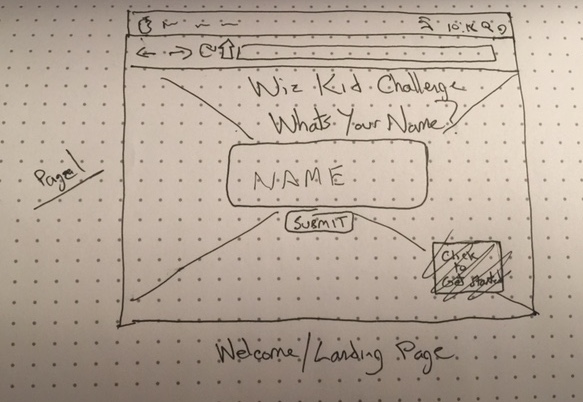 Wiz Kid Challenge
Whats Your Name?
Page 1
NAME
SUBMIT
Click
to
Get Started
Welcome/Landing Page